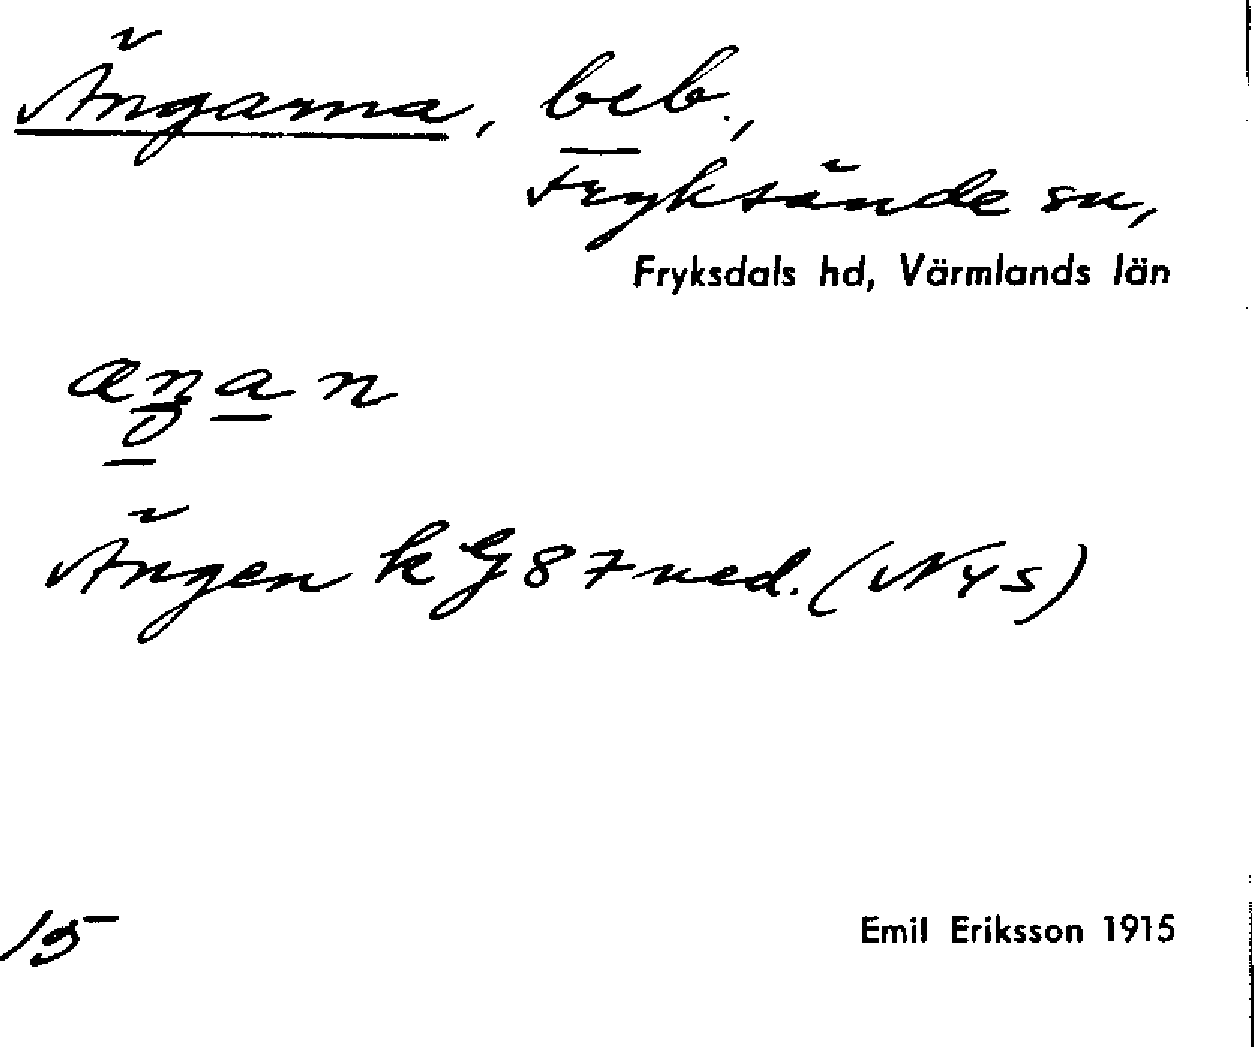 Ängarna, beb.,
Fryksände sn,
Fryksdals hd, Värmlands län
æŋan
Ängen k G 87 ned. (NYs)
15
Emil Eriksson 1915